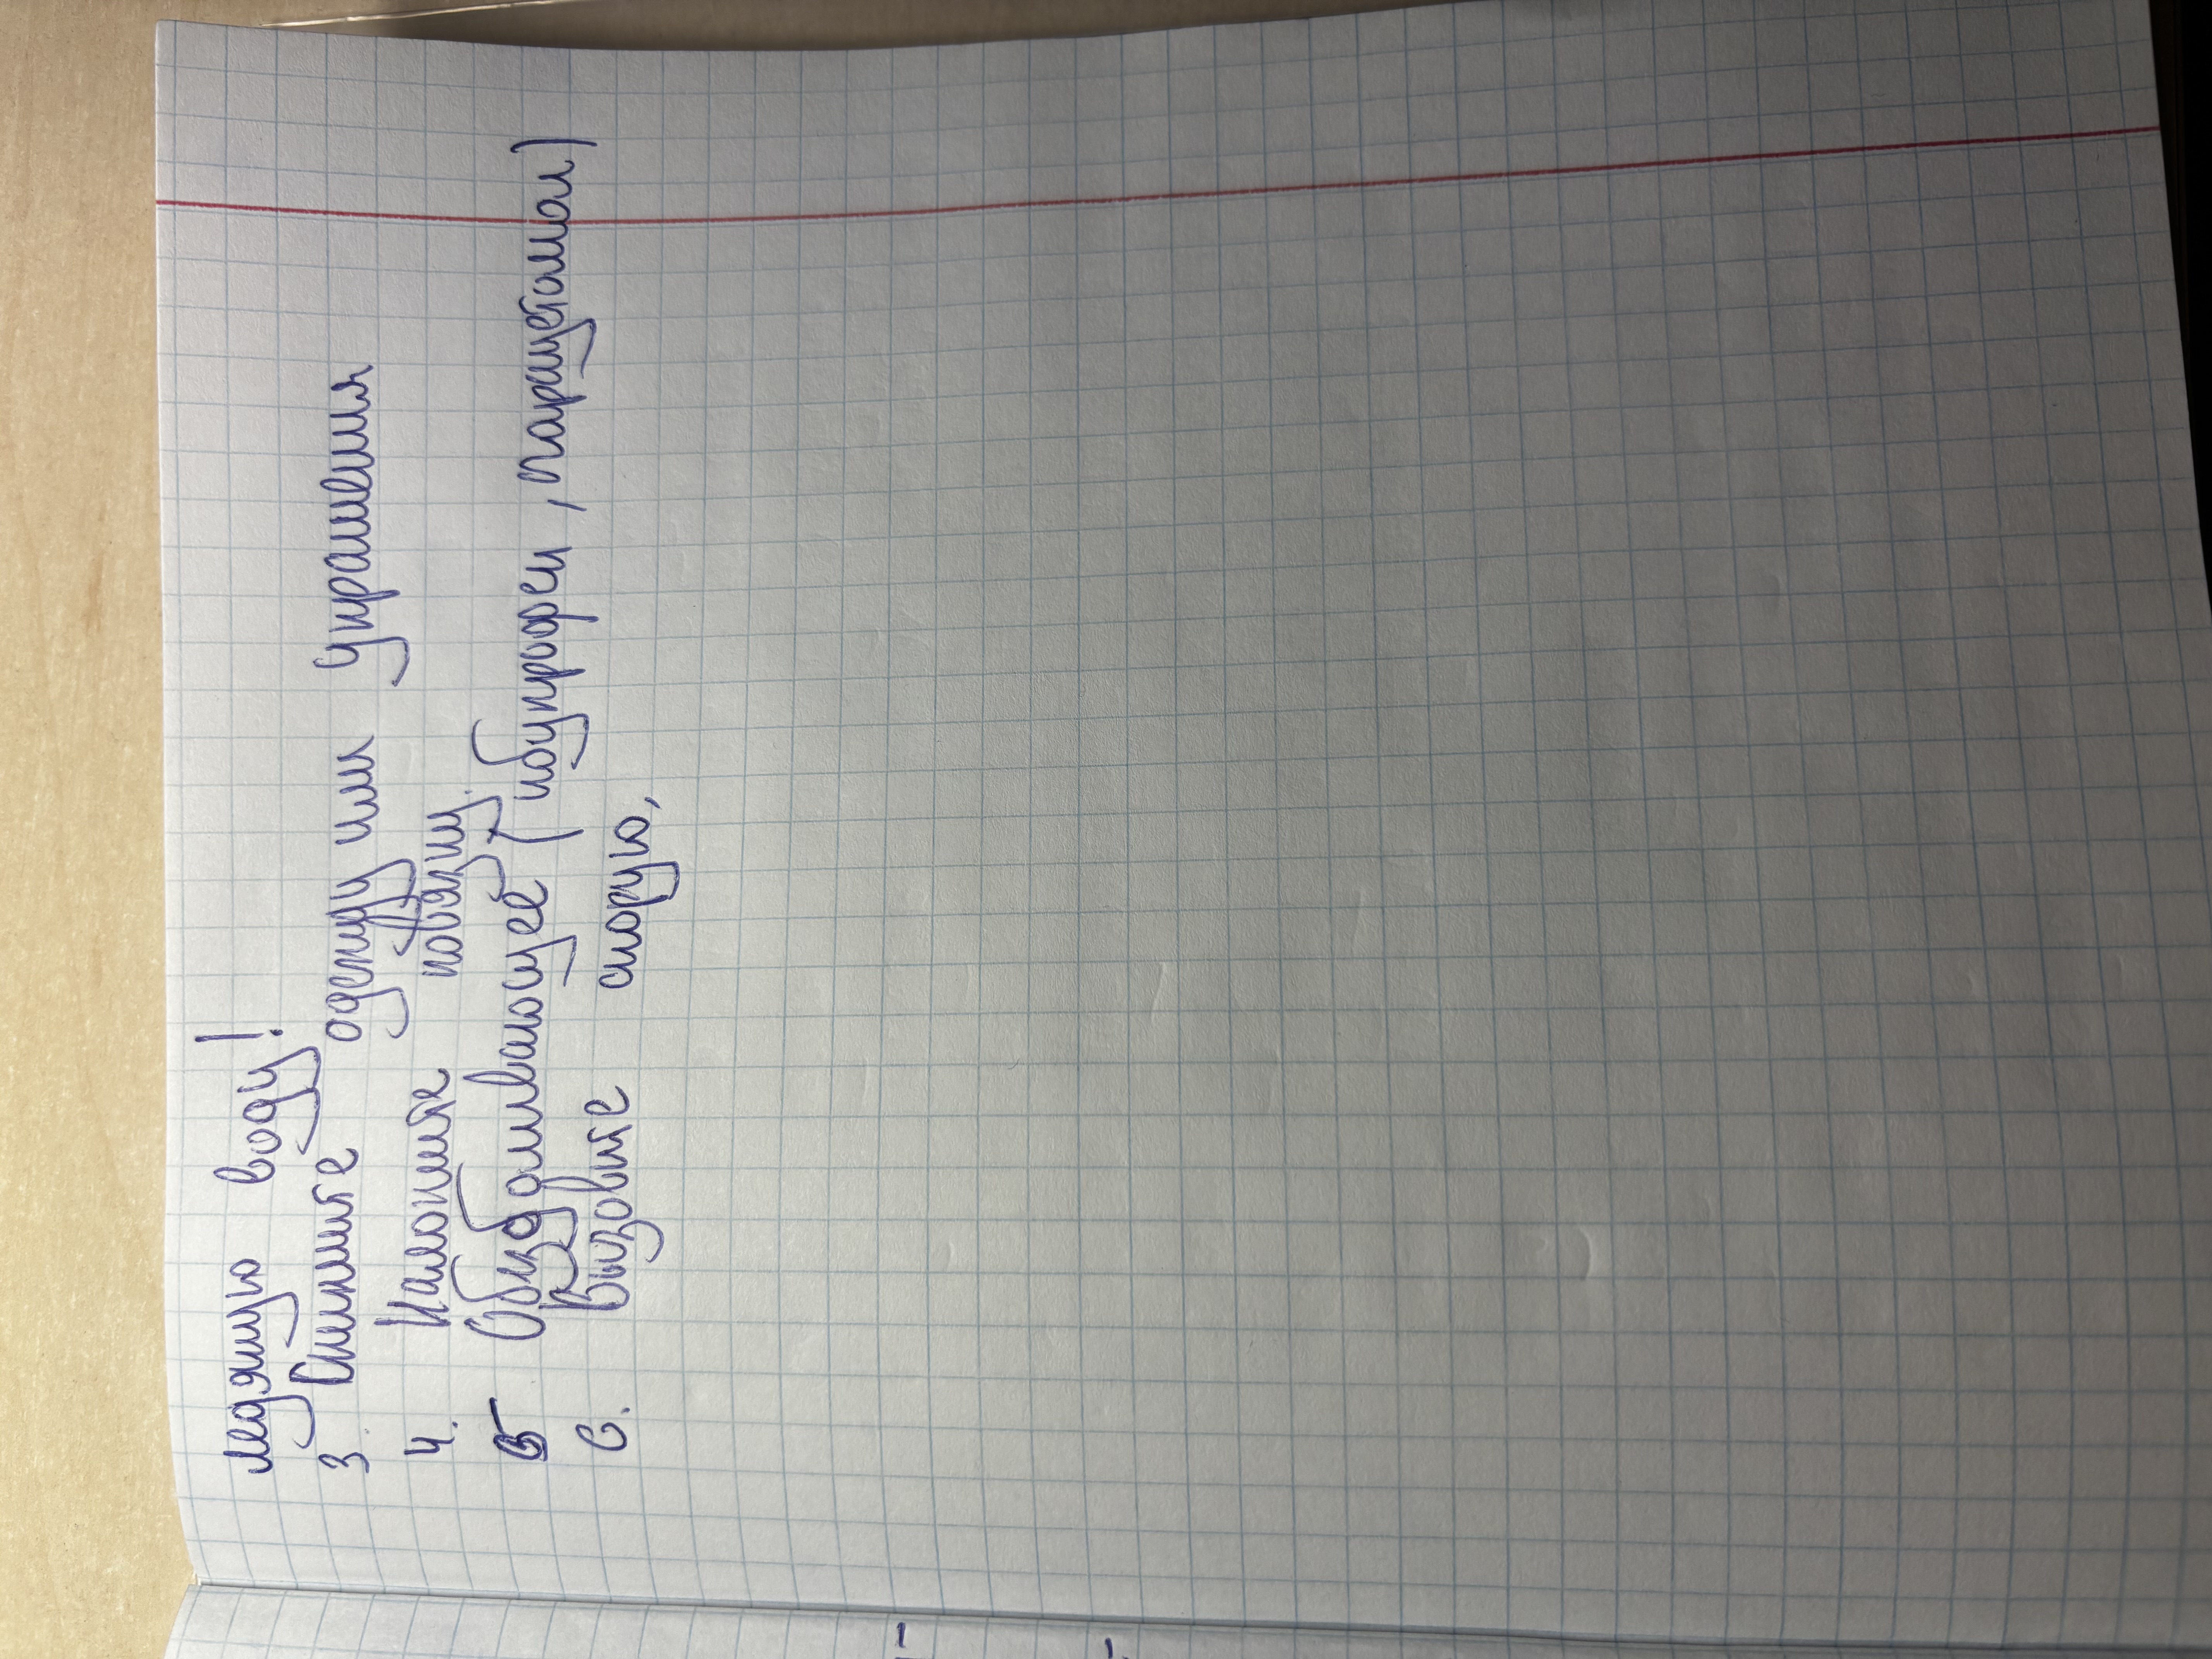 ледяную воду!
3 Снимите одежду или украшения
4. Наложите повязку.
5 Обезболивающее (ибупрофен, парацетамол)
6. Вызовите скорую,